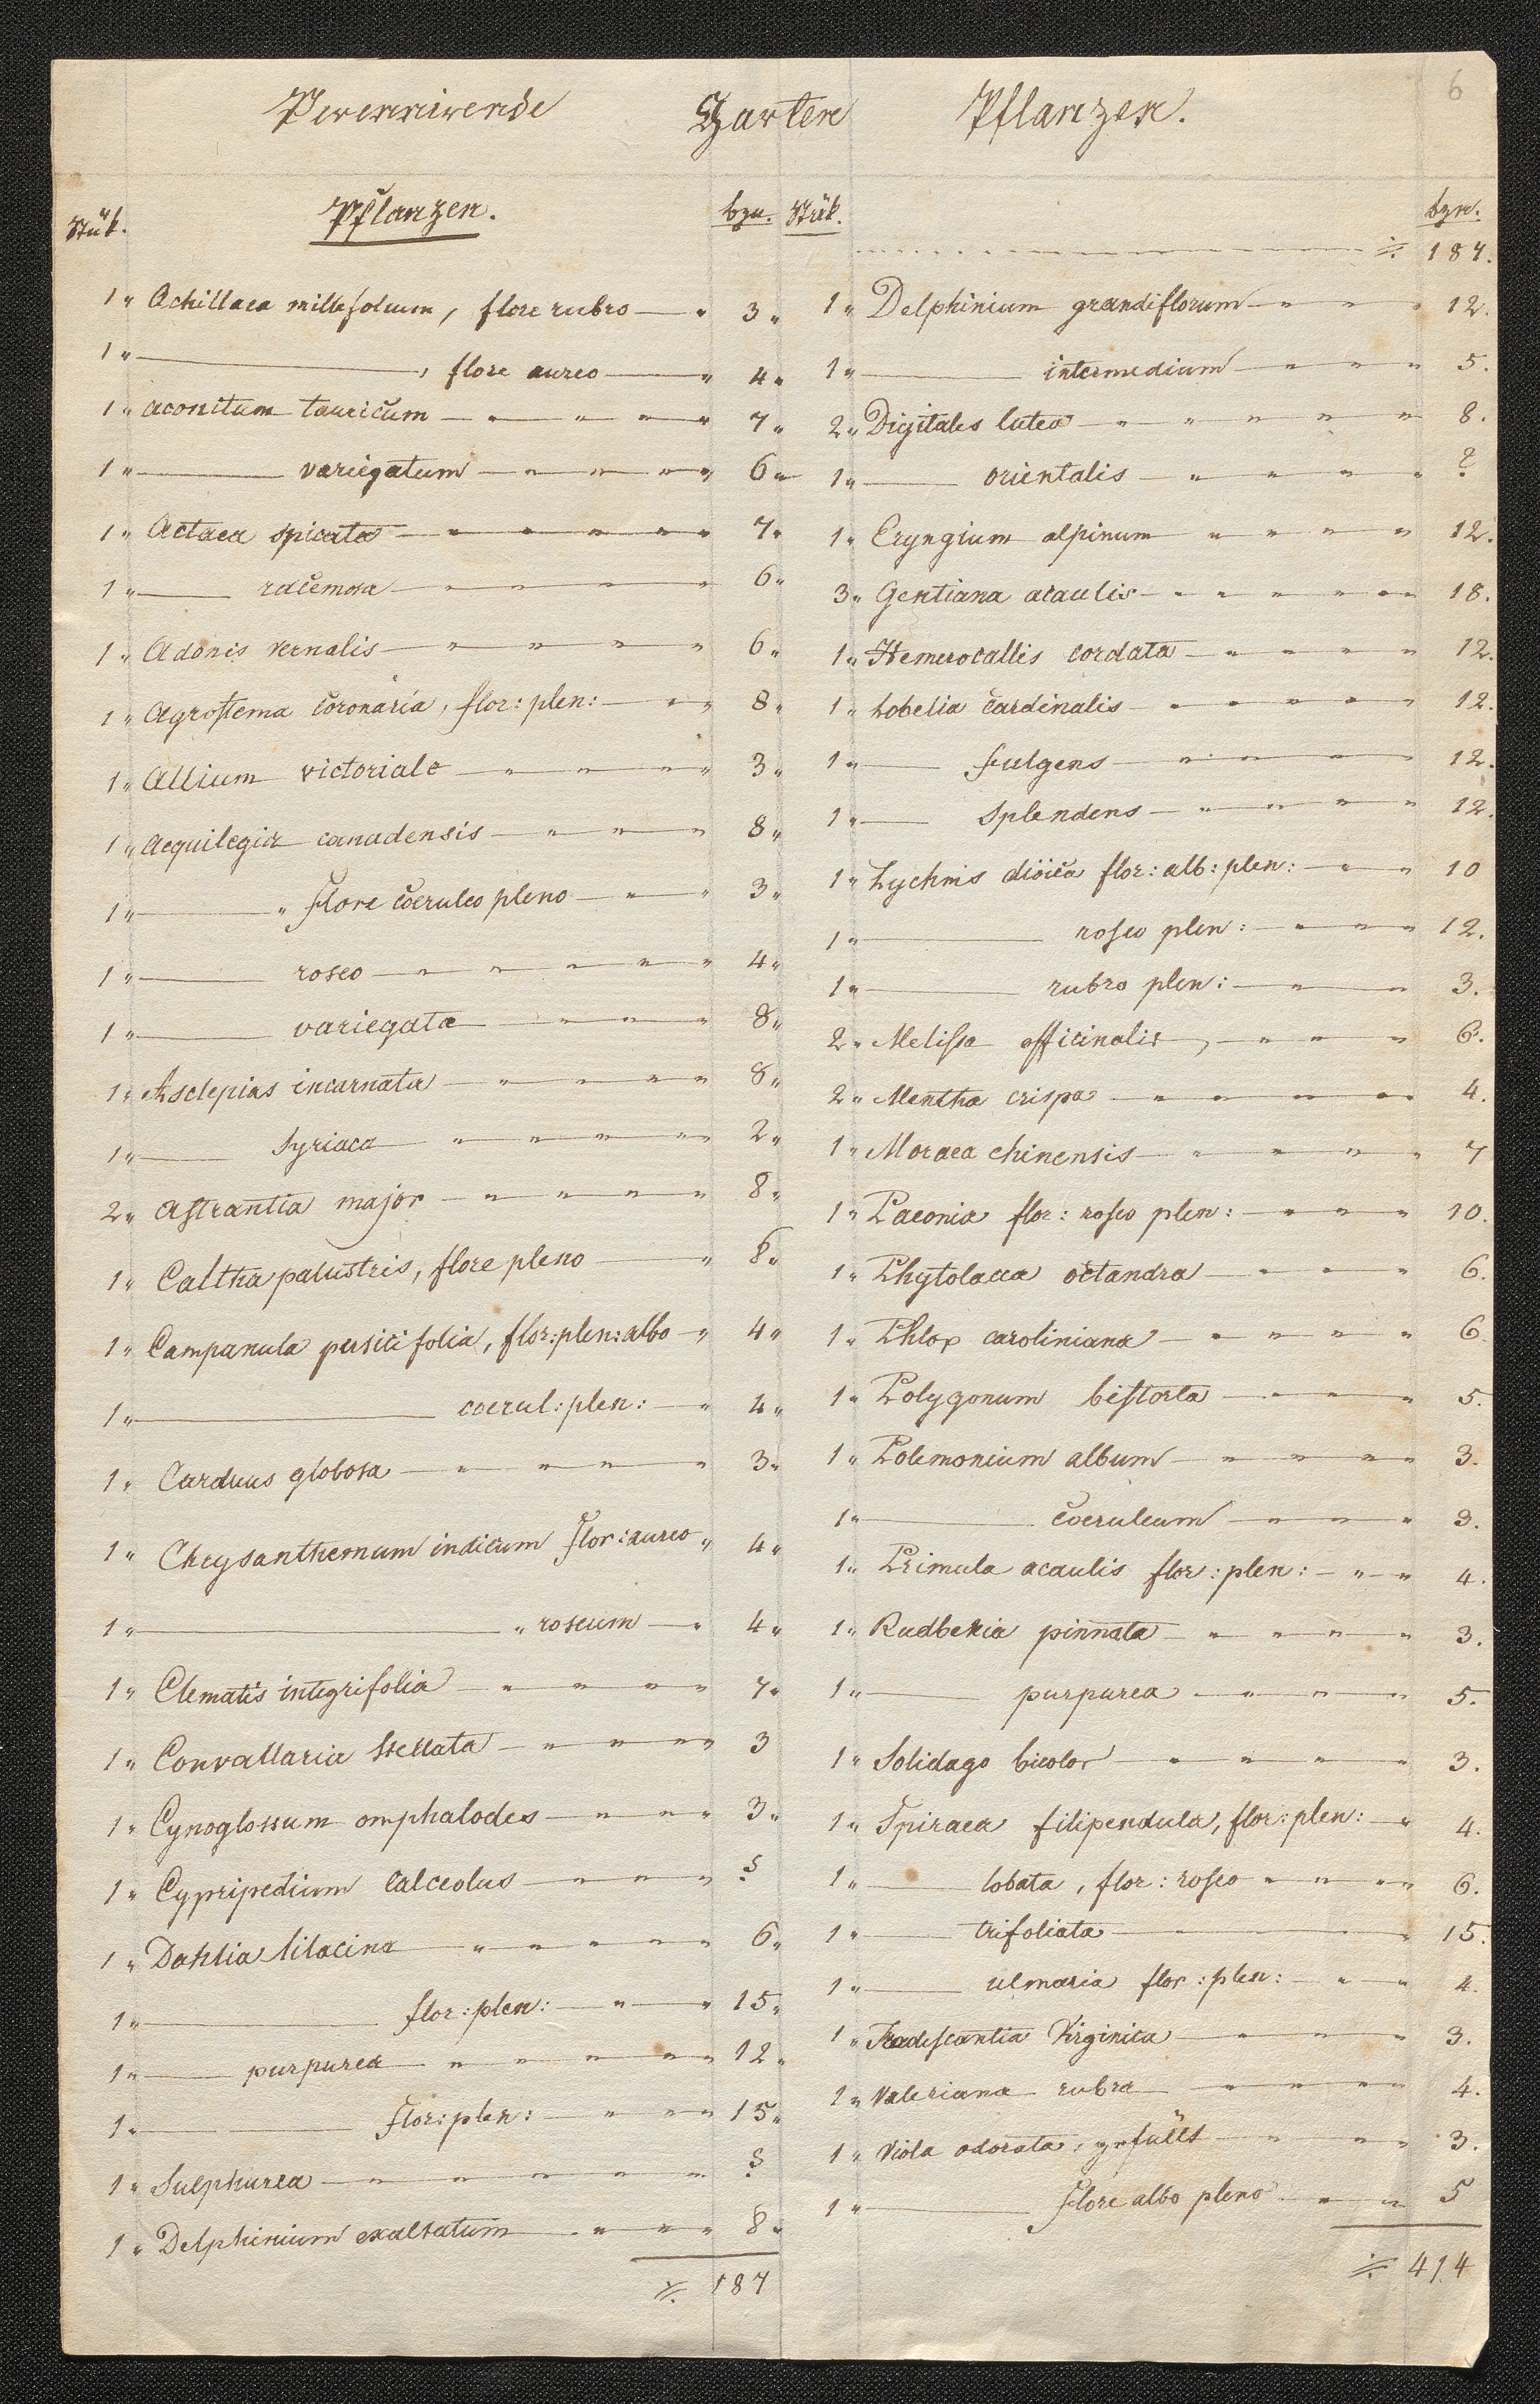 6
Perennirende Garten Pflanzen.
Stük. Pflanzen. bzn.
1 " Achillaea millefolium, flore rubro — " 3 "
1 " ——— , flore aureo — " 4 "
1 " aconitum tauricum — " — " — " — " 7 "
1 " ——— variegatum — " — " — " 6 "
1 " Actaea spicata — " — " — " — " 7 "
1 " ——— racemosa — " — " — " — " 6 "
1 " Adonis vernalis — " — " — " — " 6 "
1 " Agrostema coronaria, flor: plen: — " — " 8 "
1 " Allium victoriale — " — " — " 3 "
1 " Aequilegia canadensis — " — " — " 8 "
1 " ——— " flore coeruleo pleno — " — " 3 "
1 " ——— roseo — " — " — " — " 4 "
1 " ——— variegata — " — " — " 8 "
1 " Asclepias incarnata — " — " — " 8 "
1 " ——— Syriaca — " — " — " — " 2 "
2 " Astrantia major — " — " — " — " 8 "
1 " Caltha palustris, flore pleno — " 8 "
1 " Campanula persicifolia, flor: plen: albo — " 4 "
1 " ——— coerul: plen: — " 4 "
1 " Carduus globosa — " — " — " — " 3 "
1 " Chrysanthemum indicum flor: aureo " 4 "
1 " ——— " roseum — " 4 "
1 " Clematis integrifolia — " — " — " 7 "
1 " Convallaria stellata — " — " — " 3
1 " Cynoglossum omphalodes — " — " — " 3 "
1 " Cypripedium calceolus — " — " — " ?
1 " Dahlia lilacina — " — " — " — " 6 "
1 " ——— flor: plen: — " — " 15 "
1 " ——— purpurea — " — " — " — " 12 "
1 " ——— ——— flor: plen: — " — " 15 "
1 " Sulphurea — " — " — " — " ?
1 " Delphinium exaltatum — " — " — " 8 "
⁒ 187
Stük. bzn.
⁒ 187.
1 " Delphinium grandiflorum — " — " — " 12.
1 " ——— intermedium — " — " — " 5.
2 " Digitales lutea — " — " — " — " 8.
1 " ——— orientalis — " — " — " — " ?
1 " Eryngium alpinum — " — " — " — " 12.
3 " Gentiana acaulis — " — " — " — " 18.
1 " Hemerocallis cordata — " — " — " — " 12.
1 " Lobelia cardinalis — " — " — " — " 12.
1 " ——— fulgens — " — " — " — " 12.
1 " ——— Splendens — " — " — " — " 12.
1 " Lychnis dioica flor: alb: plen: — " — " 10
1 " ——— roseo plen: — " — " — " 12.
1 " ——— rubro plen: — " — " 3.
2 " Melissa officinalis, — " — " — " 6.
2 " Mentha crispa — " — " — " — " 4.
1 " Moraea chinensis — " — " — " — " 7
1 " Paeonia flor: roseo plen: — " — " — " 10.
1 " Phytolacca octandra — " — " — " 6.
1 " Phlox caroliniana — " — " — " — " 6
1 " Polygonum bistorta — " — " — " 5.
1 " Polemonium album — " — " — " — " 3.
1 " ——— coeruleum — " — " — " 3.
1 " Primula acaulis flor: plen: — " — " 4.
1 " Rudbekia pinnata — " — " — " — " 3.
1 " ——— purpurea — " — " — " 5.
1 " Solidago bicolor — " — " — " — " 3.
1 " Spiraea filipendula, flor: plen: — " 4.
1 " ——— lobata, flor: roseo — " — " — " 6.
1 " ——— trifoliata — " — " 15.
1 " ——— ulmaria flor: plen: — " — " 4.
1 " Tradescantia Virginica — " — " — " 3.
1 " Valeriana rubra — " — " — " — " 4.
1 " Viola odorata, gefüllt — " — " — " 3.
1 " ——— flore albo pleno — " — " 5
⁒ 414